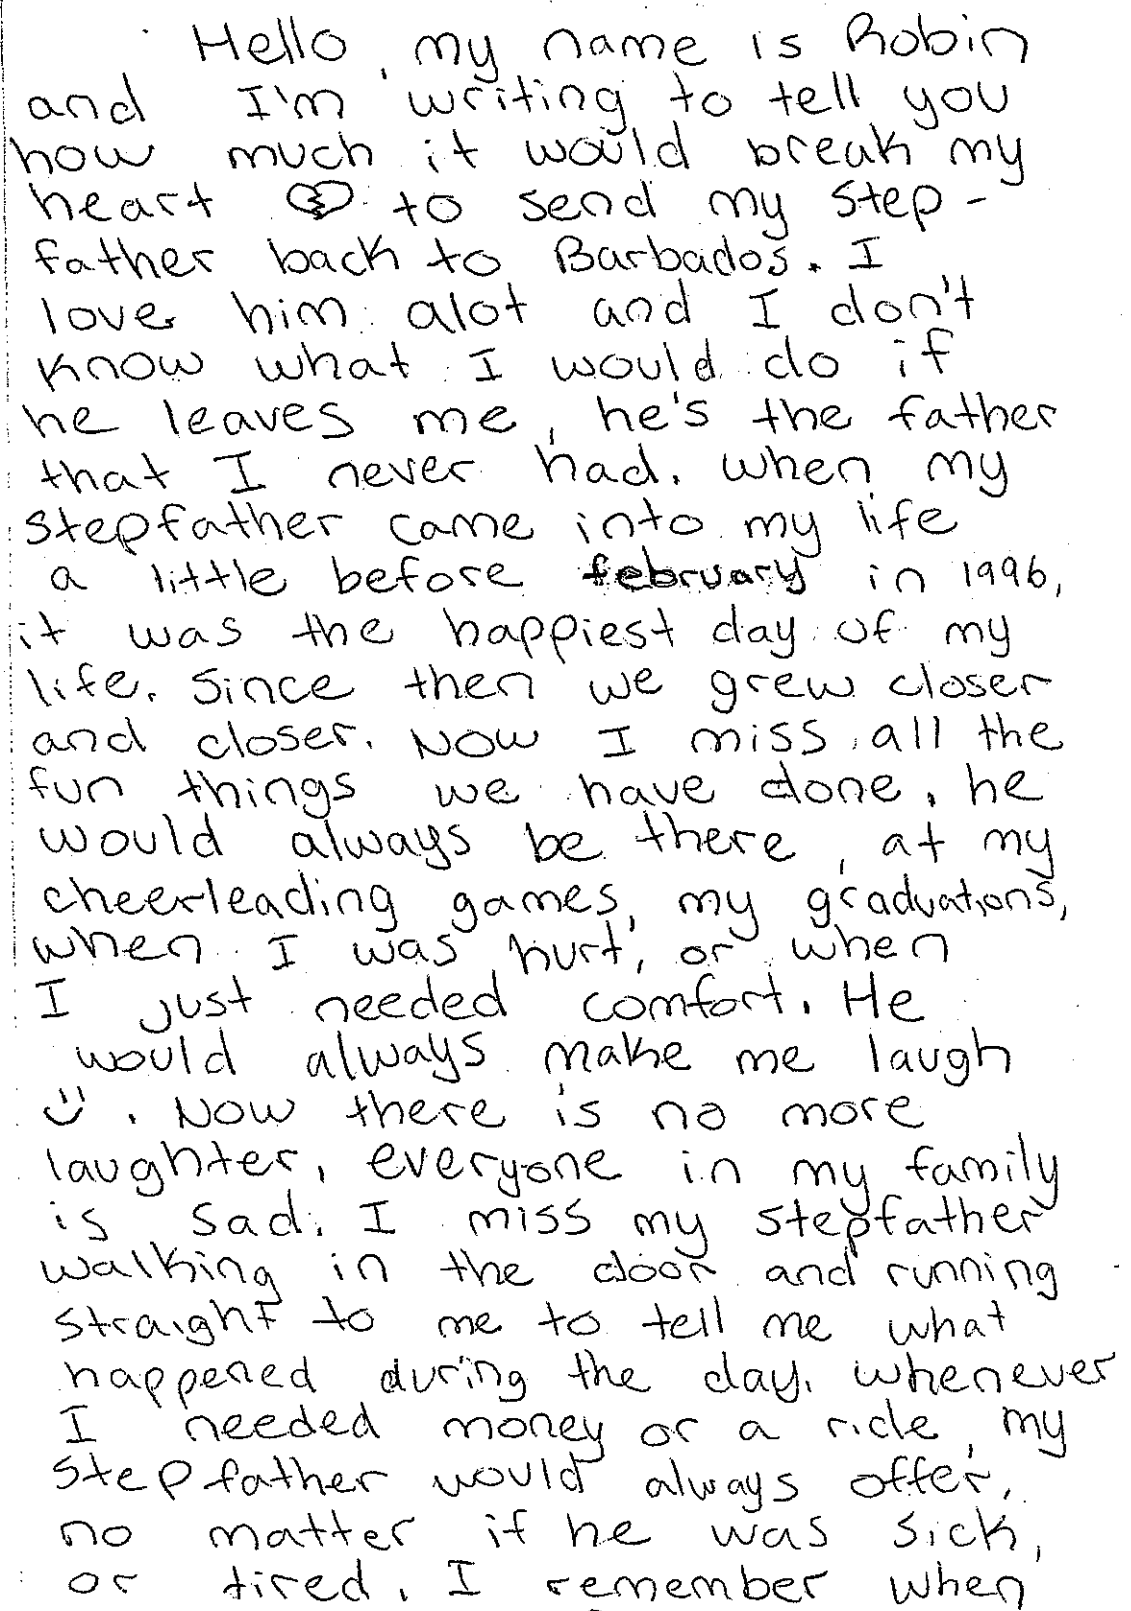 Hello, my name is Robin
and I'm writing to tell you
how much it would break my
heart 💔 to send my step-
father back to Barbados. I
love him alot and I don't
know what I would do if
he leaves me, he's the father
that I never had. when my
stepfather came into my life
a little before february in 1996,
it was the happiest day of my
life. Since then we grew closer
and closer. Now I miss all the
fun things we have done, he
would always be there, at my
cheerleading games, my graduations,
when I was hurt, or when
I just needed comfort. He
would always make me laugh
☺. Now there is no more
laughter, everyone in my family
is sad. I miss my stepfather
walking in the door and running
straight to me to tell me what
happened during the day. whenever
I needed money or a ride, my
stepfather would always offer,
no matter if he was sick,
or tired. I remember when